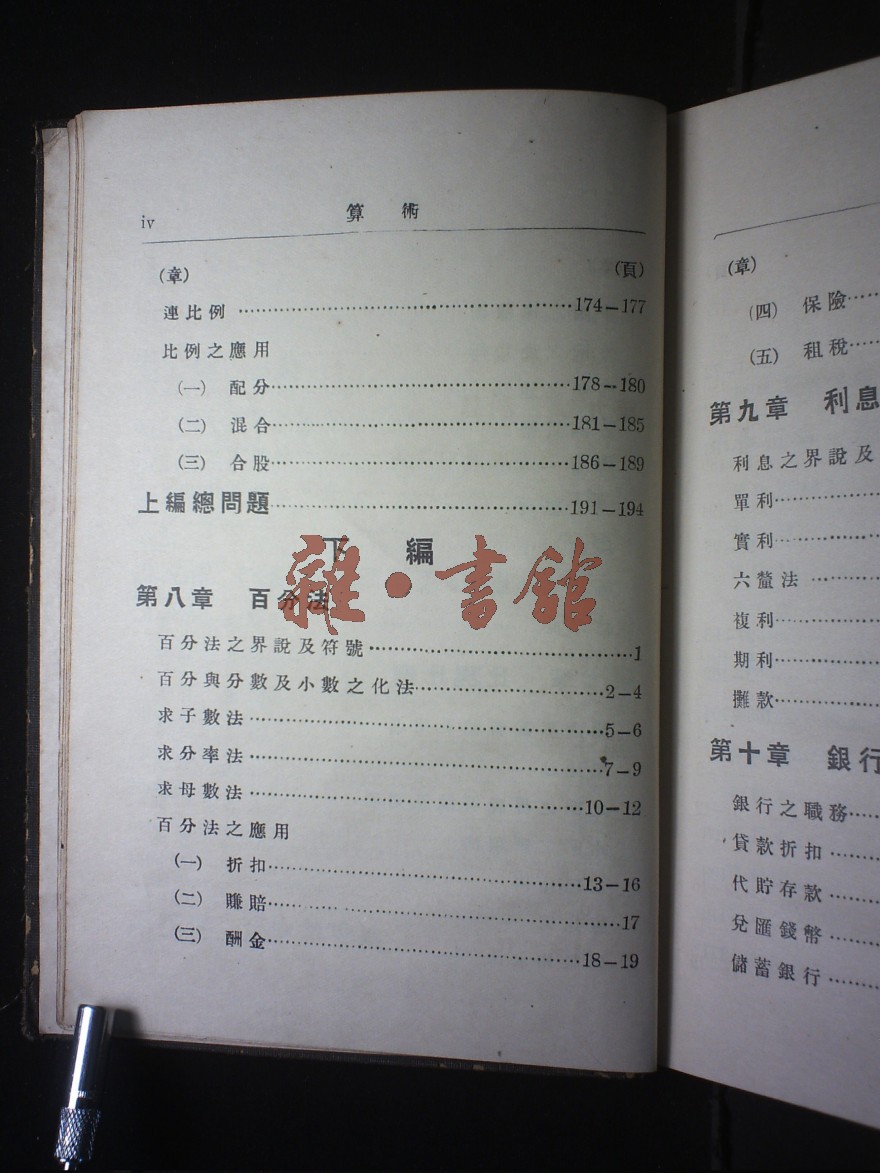 iv 算術
(章) (頁)
連比例 174—177
比例之應用
(一) 配分 178—180
(二) 混合 181—185
(三) 合股 186—189
上編總問題 191—194
下編
雜·書館
第八章 百分法
百分法之界說及符號 1
百分與分數及小數之化法 2—4
求子數法 5—6
求分率法 7—9
求母數法 10—12
百分法之應用
(一) 折扣 13—16
(二) 賺賠 17
(三) 酬金 18—19
(章)
(四) 保險
(五) 租稅
第九章 利息
利息之界說及
單利
實利
六釐法
複利
期利
攤款
第十章 銀行
銀行之職務
貸款折扣
代貯存款
兌匯錢幣
儲蓄銀行